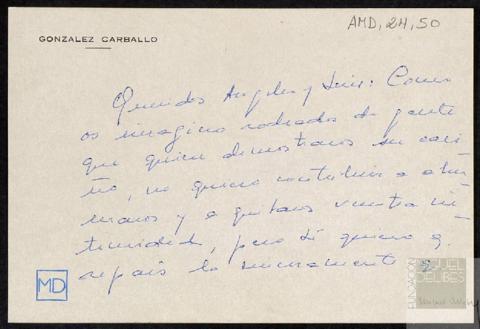 AMD, 24, 50
GONZALEZ CARBALLO
Queridos Angeles y Luis: Como
os imagino rodeados de gente
que quiere demostraros su cari-
ño, no quiero contribuir a abru-
maros y a quitaros vuestra in-
timidad, pero sí quiero q.
sepais lo sinceramente q.
MD
FUNDACIÓN
MIGUEL
DELIBES